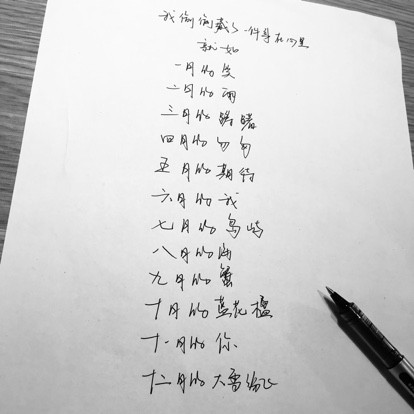 我偷偷藏了一件事在心里
就如
一月的
二月的雨
三月的
四月的匆匆
五月的期待
六月的我
七月的岛屿
八月的
九月的蟹
十月的蓝花楹
十一月的你
十二月的大雪纷飞